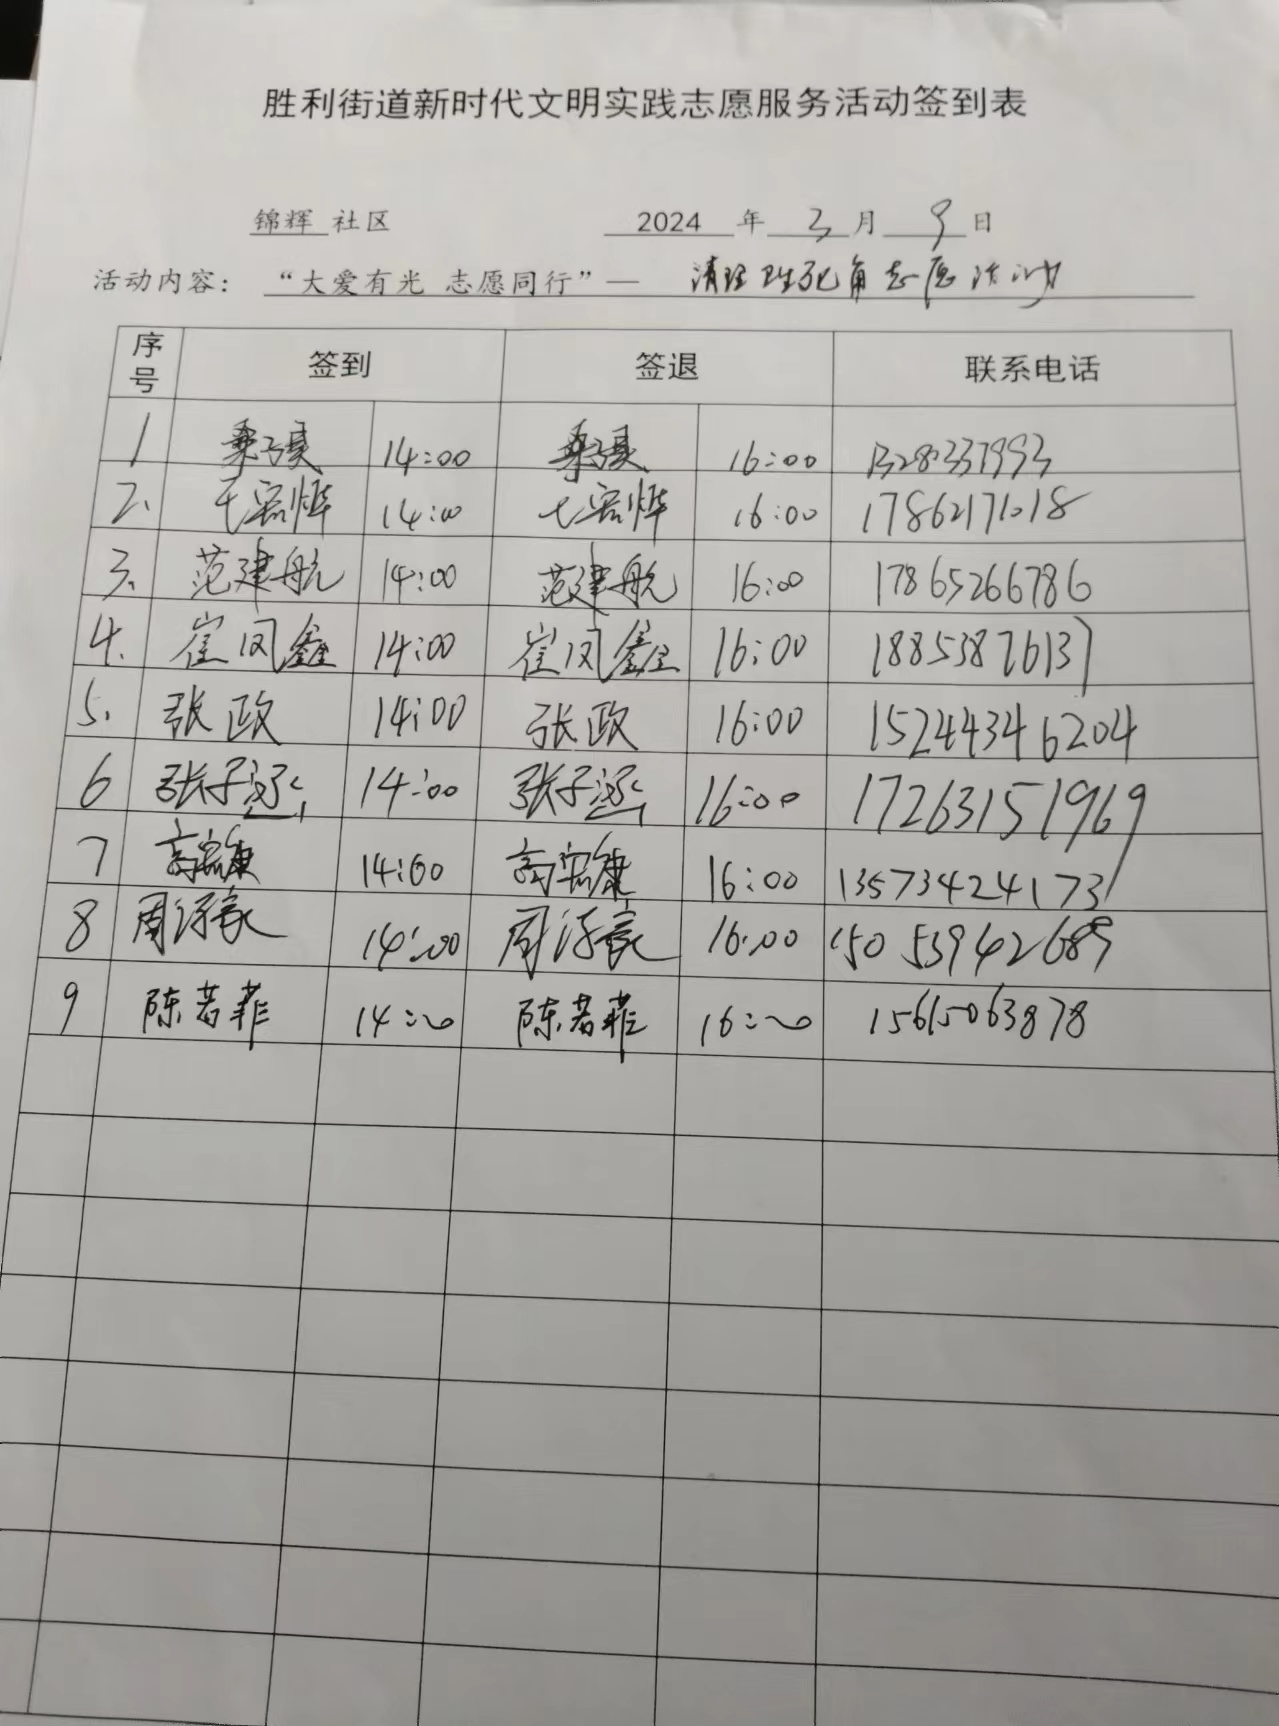 胜利街道新时代文明实践志愿服务活动签到表
锦辉 社区 2024 年 3 月 9 日
活动内容： “大爱有光 志愿同行”— 清理卫生死角志愿活动
序号 签到 签退 联系电话
1 14:00 16:00
2、 14:00 16:00 17862171018
3、 范建航 14:00 范建航 16:00 17865266786
4、 崔凤鑫 14:00 崔凤鑫 16:00 18853876137
5、 张政 14:00 张政 16:00 15244346204
6 张子丞 14:00 张子丞 16:00 17263151969
7 高宏康 14:00 高宏康 16:00 13573424173
8 周沛豪 14:00 周沛豪 16:00 15053942689
9 陈若菲 14:00 陈若菲 16:00 15615063878